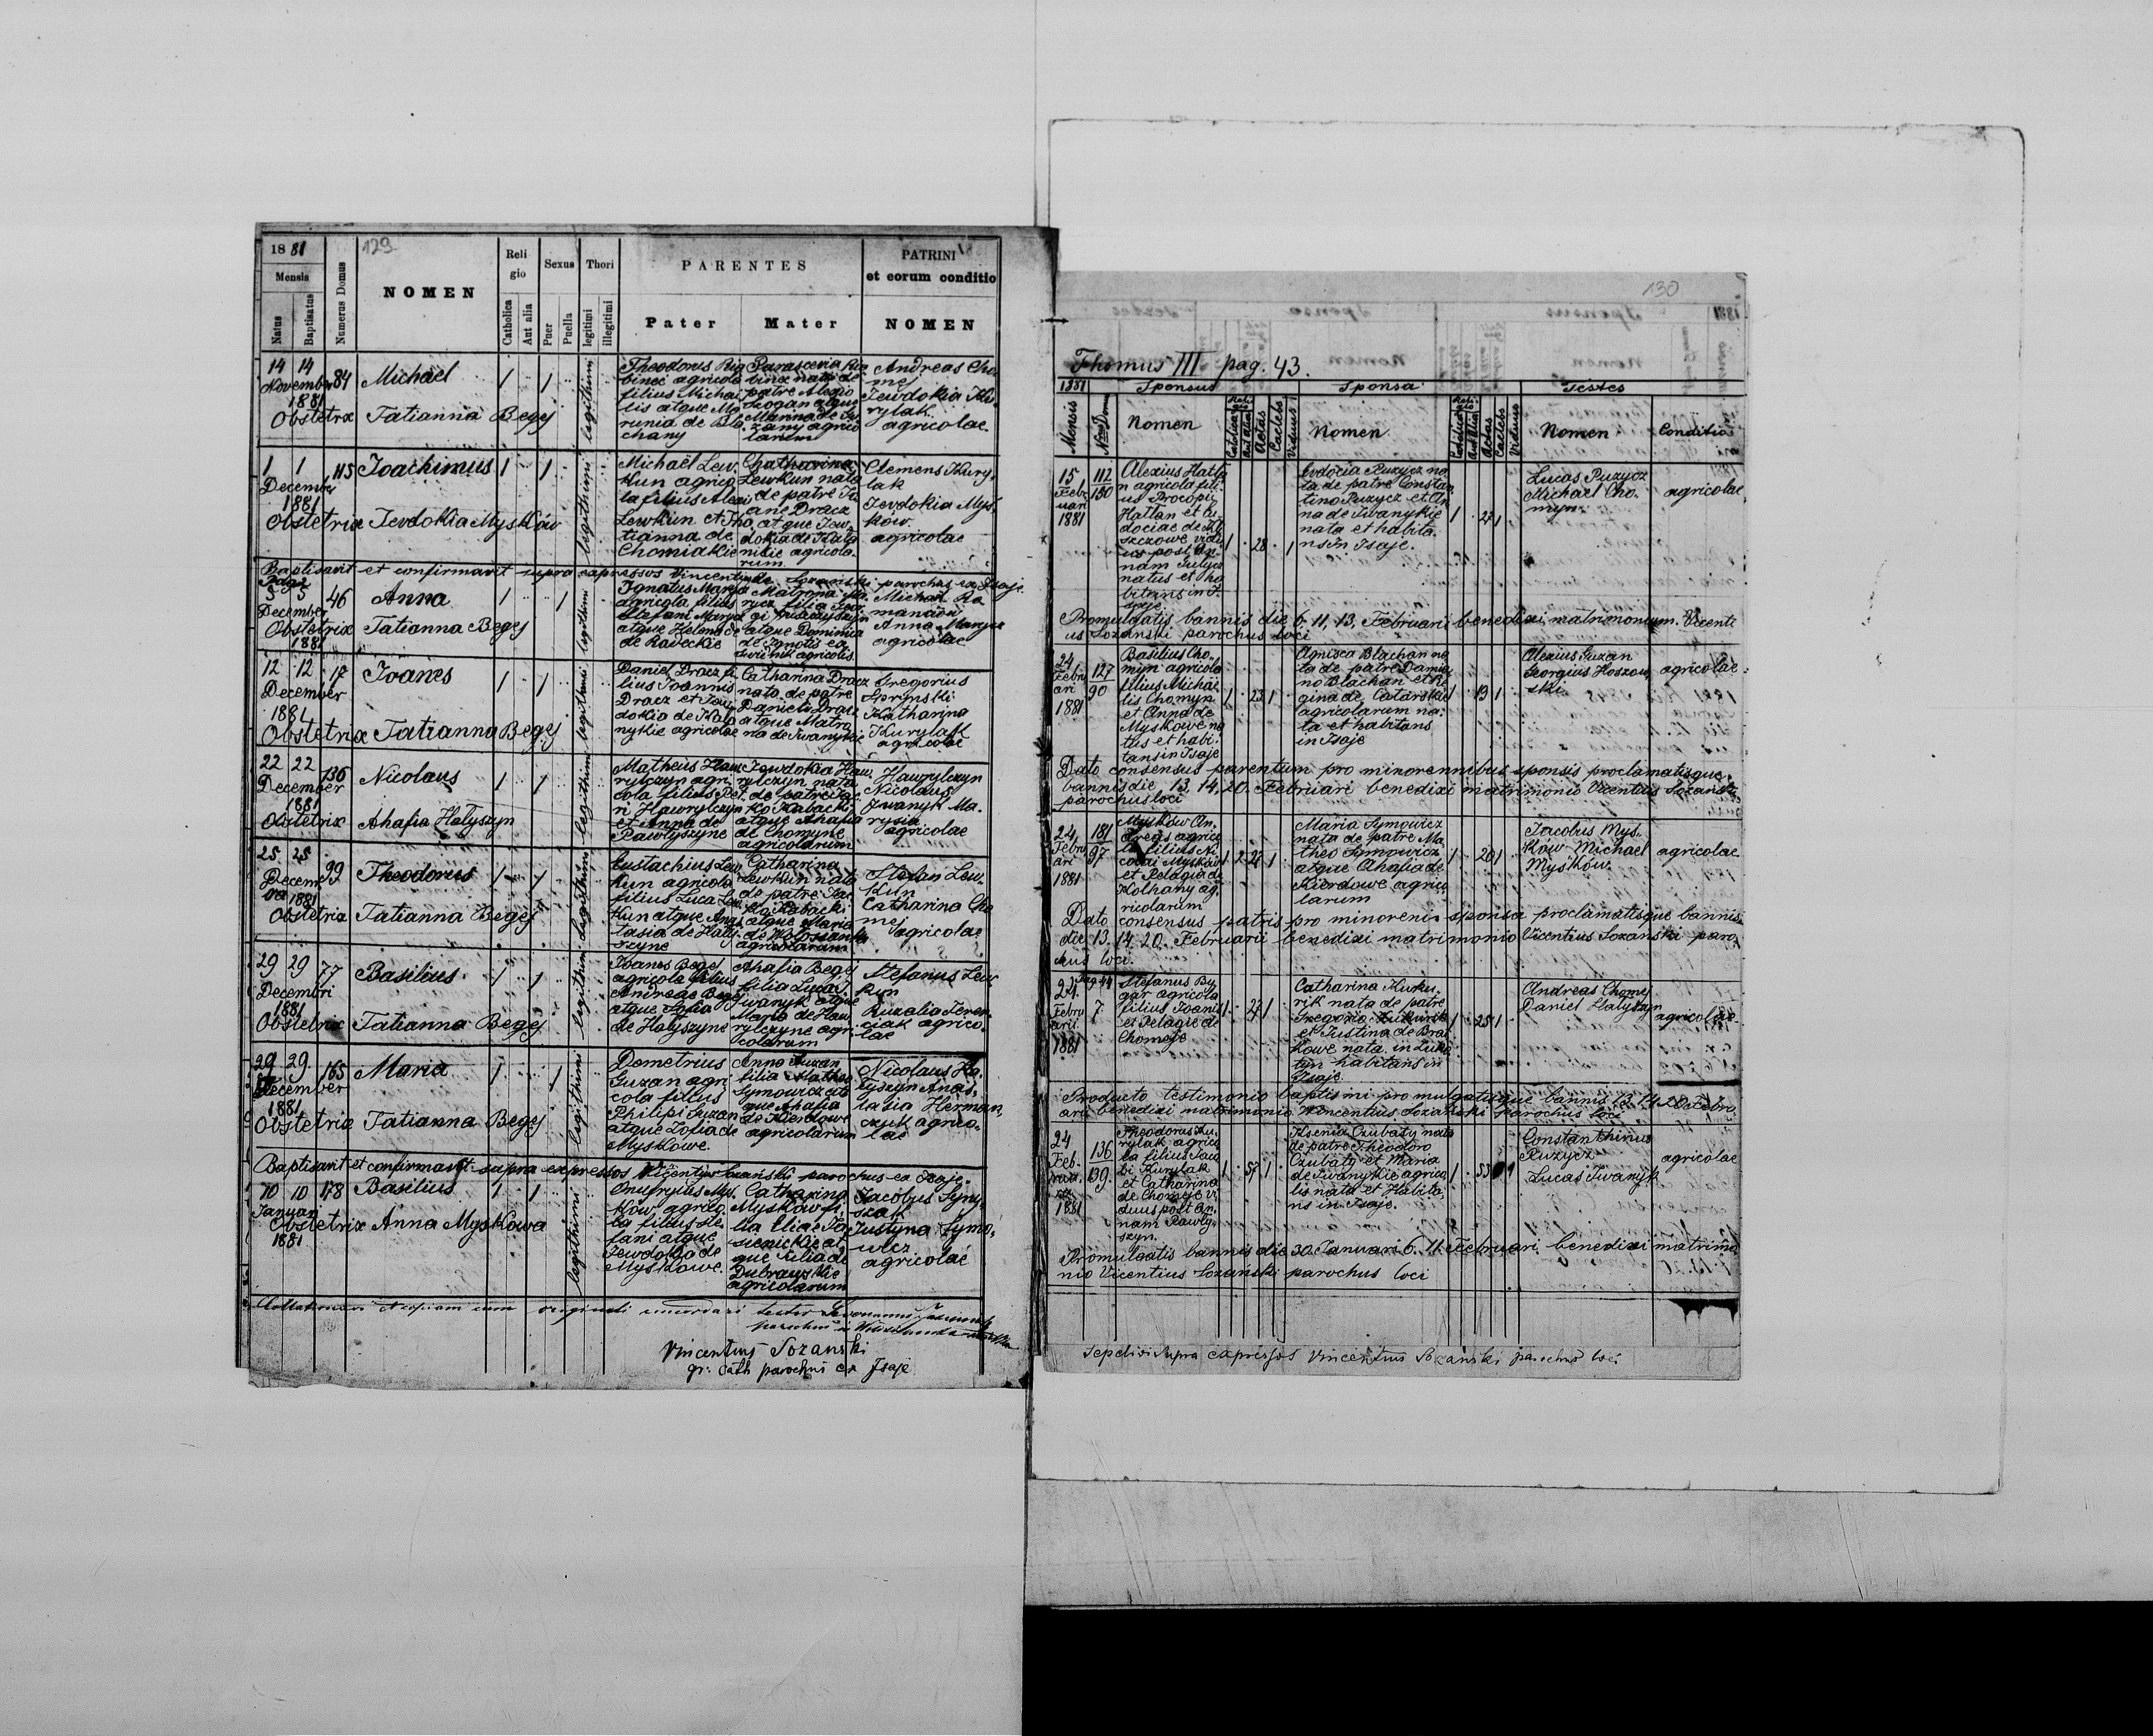 18 81
129
Mensis
Natus
Baptisatus
Numerus Domus
NOMEN
Reli
gio
Catholica
Aut alia
Sexus
Puer
Puella
Thori
legitimi
illegitimi
PARENTES
Pater
Mater
PATRINI
et eorum conditio
NOMEN
14 14
November
1881
84
Michael
Obstetrix Tatianna Begej
legithimi
Theodorus Rig
binec agricola
filius Michae
lis atque Ma
runia de Bla
chany
Parasceria Rig
binec nata de
patre Alexio
Drogan atque
Marina de Su
zany agrico
larum
Andreas Cho
mej
Jewdokia Ku
rylak
agricolae
1 1
Decembr
1881
115
Joachimus
Obstetrix Jevdokia Myskków
legithimi
Michael Lew.
kun agrico
la filius Alexii
Lewkun et Tho
tianna de
Chomiakie
Chatharina
Lewkun nata
de patre Jo
ane Dracz
atque Jew
dokia de Hala
nikie agricola
rum
Clemens Kury
lak
Jevdokia Mys
ków
agricolae
Baptisavit et confirmavit supra expressos Vincentius Sozański parochus ex Isaje
5 5
December
1881
46
Anna
Obstetrix Tatianna Begej
legithimi
Ignatus Maryn
agricola filius
Stefani Marycz
atque Helena de
de Radeckie
Matrona Ma
rycz filia Geor
gi
atque Dominica
de Ignotis ex
agricolis
Michael Ro
manczow
Anna Marycz
agricolae
12 12
December
1881
17
Joanes
Obstetrix Tatianna Begej
legithimi
Daniel Dracz fi
lius Joannis
Dracz et Jew
dokia de Hala
nykie agricolae
Catharina Dracz
nata de patre
Danielo Dracz
atque Matro
na de Jwanykie
Gregorius
Gorinski
Katharina
Kurylak
agricolae
22 22
December
1881
136
Nicolaus
Obstetrix Ahafia Hatyszyn
legithimi
Matheus Haw
rylczyn agri
cola filius Pet
ri Hawrylczyn
et Anna de
Pawlyszyne
Jewdokia Haw
rylczyn nata
de patre Jac
ko Kabacki
atque Ahafia
de Chomyne
agricolarum
Hawrylczyn
Nicolaus
Jwanyk Ma
rysia
agricolae
25 25
Decem
ber 1881
99
Theodorus
Obstetrix Tatianna Begej
legithimi
Eustachius Lew
kun agricola
filius Luca Lew
kun atque Anas
tasia de Haty
szyne
Catharina
Lewkun nata
de patre Jac
ko Kabacki
atque Maria
de Woloszanka
agricolarum
Stefan Lew
kun
Catharina Cho
mej
agricolae
29 29
Decembri
1881
77
Basilius
Obstetrix Tatianna Begej
legithimi
Joanes Begej
agricola filius
Andreae Begej
atque Sofia
de Halyszyne
Ahafia Begej
filia Lucas
Jwanyk atque
Maria de Haw
rylczyne agri
colarum
Stefanus Lew
kun
Ruzalia Feren
ciak agrico
lae
29 29
December
1881
165
Maria
Obstetrix Tatianna Begej
legithimi
Demetrius
Suzan agri
cola filius
Philipi Suzan
atque Zofia de
Myskowe
Anna Suzan
filia Matheo
Symowicz at
que Ahafia
de Kierdowe
agricolarum
Nicolaus Ha
tyszyn Anas
tasia Herman
czyk agrico
lae
Baptisavit et confirmavit supra expressos Vicentius Sozański parochus ex Isaje
10 10
Januari
1881
178
Basilius
Obstetrix Anna Myskowa
legithimi
Onufryius Mys
ków agrico
la filius Ste
fani atque
Jewdokia de
Myskowe
Catharina
Myskow fi
lia Eliae Ja
sienickie at
que Julia de
Dubrawskie
agricolarum
Jacobus Syny
szak
Justyna Symo
wicz
agricolae
Vincentius Sozanski
gr: cath parochus ex Isaje
130
Thomus III pag. 43.
1881
Sponsus
Sponsa
Testes
Mensis
Nrus Domus
Nomen
Religio
Catholica
Aut alia
Aetas
Caelebs
Viduus
Nomen
Religio
Catholica
Aut alia
Aetas
Caelebs
Viduus
Nomen
Conditio
15
Febr
uari
1881
112
130
Alexius Hatla
n agricola fili
us Procopi
Hatlan et Ev
dociae de Kl
szczowe vidu
us post An
nam Julyn
natus et ha
bitans in I
saje
1 28 1
Evdocia Puzycz na
ta de patre Constan
tino Puzycz et An
na de Jwanykie
nata et habita
ns in Isaje.
1 27 1
Lucas Puzycz
Michael Cho
myn
agricolae
Promulgatis bannis die 6, 11, 13, Februarii benedixi matrimonium. Vicenti
us Sozanski parochus loci
24
Febru
ari
1881
127
90
Basilius Cho
myn agricola
filius Michae
lis Chomyn
et Anna de
Myskowe na
tus et habi
tans in Isaje
1 23 1
Agnisca Blachan na
ta de patre Damia
no Blachan et Re
gina de Catarskie
agricolarum na
ta et habitans
in Isaje
1 19 1
Alexius Suzan
Georgius Hoszow
ski
agricolae
Dato consensus parentum pro minorennibus sponsis proclamatisque
bannis die 13. 14. 20. Februari benedixi matrimonio Vicentius Sozanski
parochus loci
24
Febru
ari
1881
181
97
Myskow An
dreas agrico
la filius Ni
colai Myskow
et Pelagia de
Kolhany ag
ricolarum
1 26 1
Maria Symowicz
nata de patre Ma
theo Symowicz
atque Ahafia de
Kierdowe agrico
larum
1 20 1
Jacobus Mys
kow Michael
Myskow
agricolae
Dato consensus patris pro minoreni sponsa proclamatisque bannis
die 13. 14. 20. Februarii benedixi matrimonio Vicentius Sozanski paro
chus loci.
Pag 44
24
Febru
arii
1881
7
Stefanus By
gar agricola
filius Joanis
et Pelagie de
Chomeje
1 27 1
Catharina Kuku
rik nata de patre
Gregorio Kukurik
et Justina de Bral
kowe nata in Luko
tyn habitans in
Isaje
1 25 1
Andreas Chomej
Daniel Halyszyn
agricolae
Producto testimonio baptismi promulgatisque bannis 13. 14. 20 Febru
arii benedixi matrimonio Vincentius Sozanski parochus loci
24
Feb
ruar
1881
136
139
Theodorus Ku
rylak agrico
la filius Jaco
bi Kurylak
et Catharina
de Chomeje vi
duus post An
nam Pawly
szyn
1 57 1
Ksenia Czubaty nata
de patre Theodoro
Czubaty et Maria
de Jwanykie agrico
lis nata et Habita
ns in Isaje.
1 53 1
Constanthinus
Puzycz
Lucas Jwanyk
agricolae
Promulgatis bannis die 30. Januari 6. 11 Februari benedixi matrimo
nio Vicentius Sozański parochus loci
Sepelivi supra expressos Vincentius Sozanski parochus loci